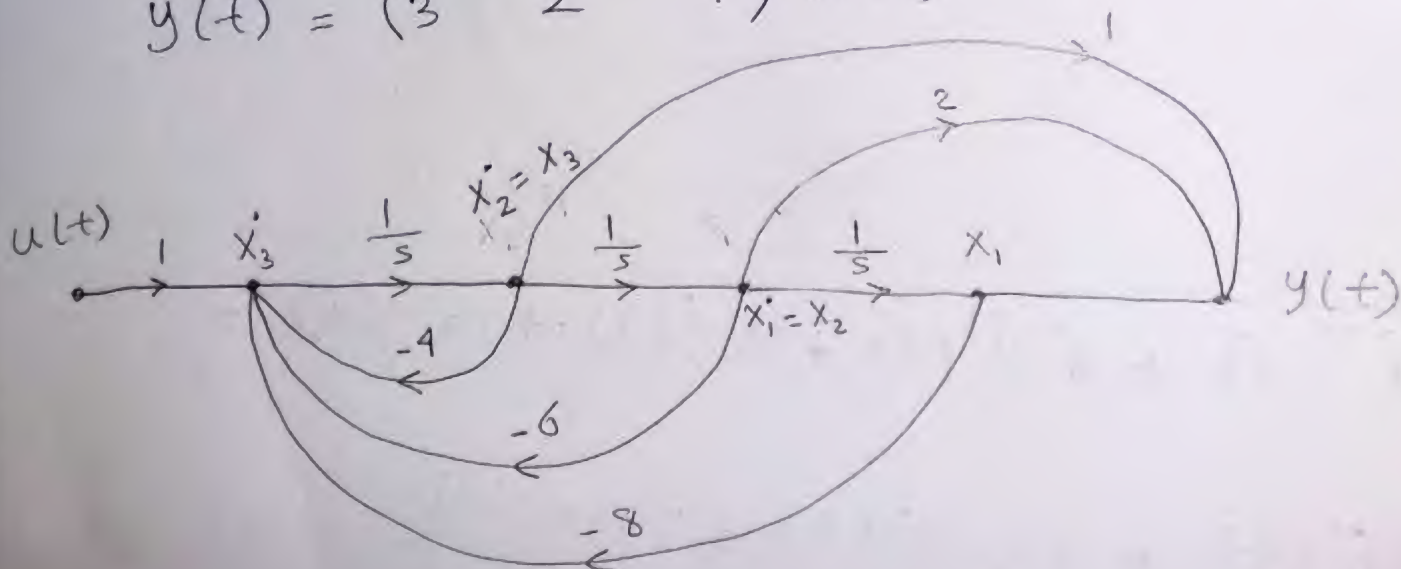 y(t) = (3 2
1
2
ẋ2 = x3
u(t) 1 ẋ3 1/s 1/s 1/s x1 y(t)
ẋ1 = x2
-4
-6
-8